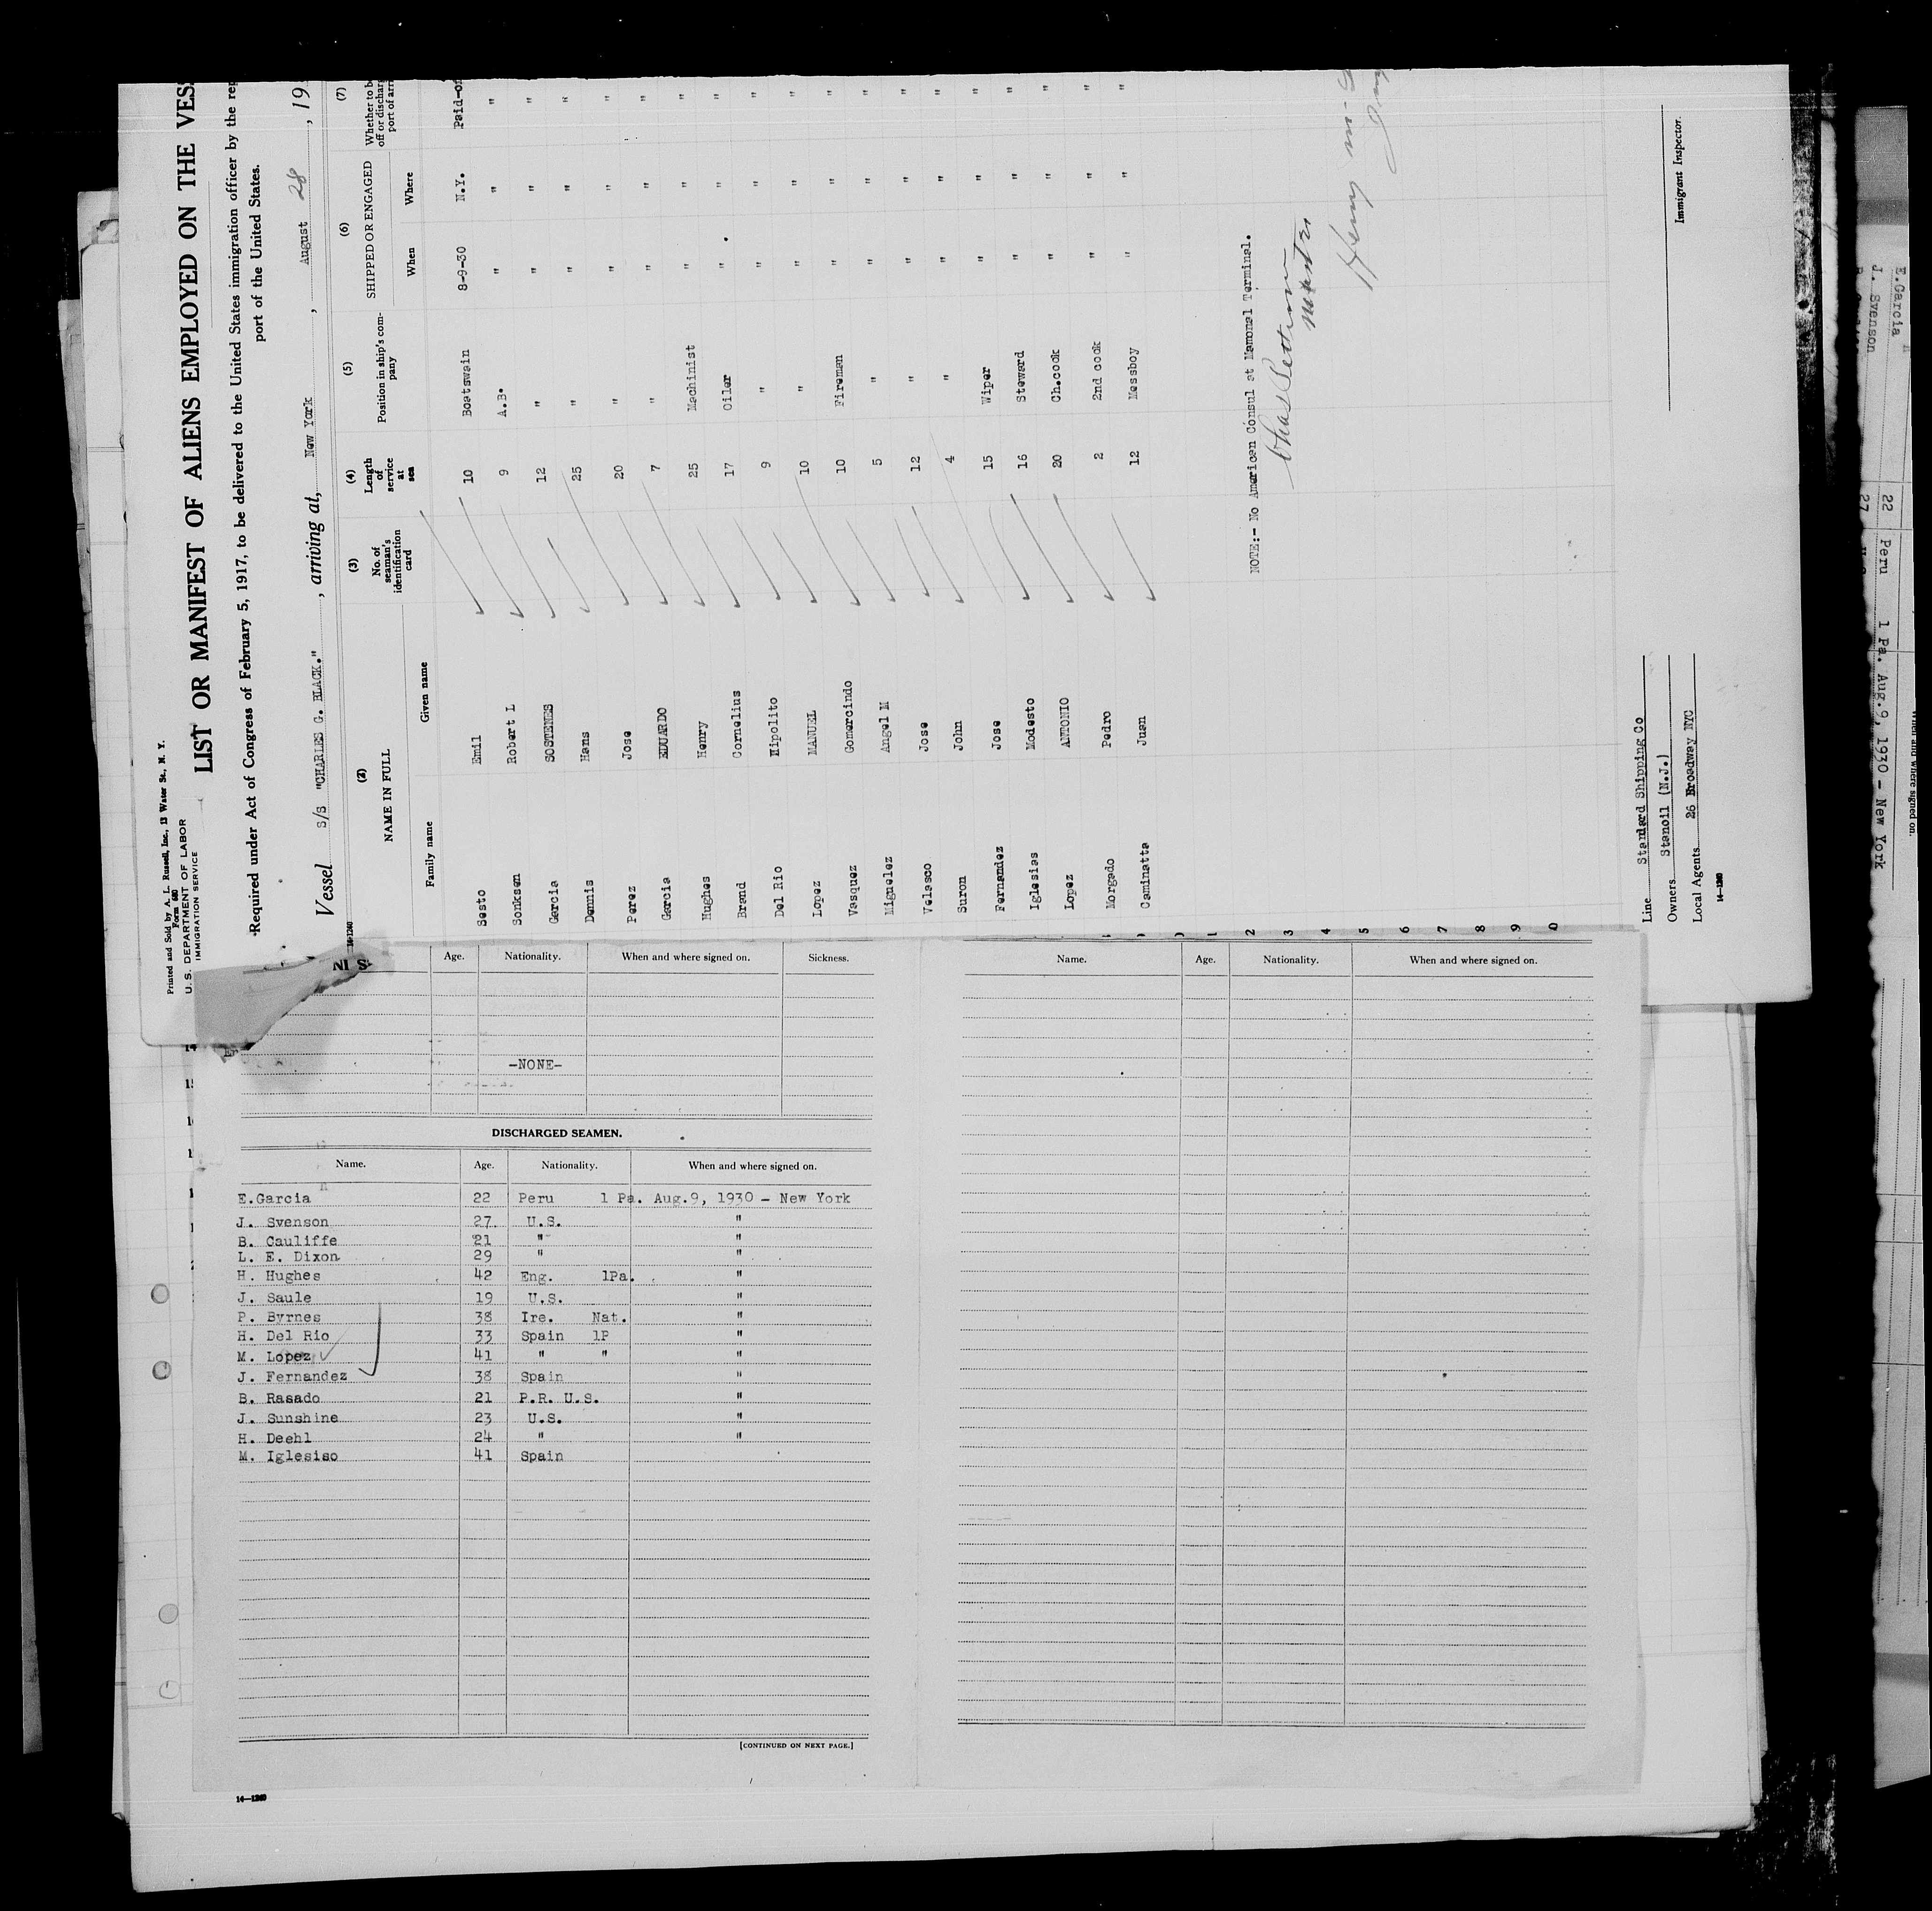 Printed and Sold by A. L. Russell, Inc., 13 Water St., N. Y.
Form 680
U. S. DEPARTMENT OF LABOR
IMMIGRATION SERVICE
LIST OR MANIFEST OF ALIENS EMPLOYED ON THE VES
Required under Act of Congress of February 5, 1917, to be delivered to the United States immigration officer by the rep
port of the United States.
Vessel S/S "CHARLES G. BLACK.", arriving at, New York, August 28, 19
(2) (3) (4) (5) (6) (7)
NAME IN FULL No. of seaman's identification card Length of service at sea Position in ship's company SHIPPED OR ENGAGED Whether to b off or dischar port of arr
Family name Given name When Where
Sesto Emil 10 Boatswain 8-9-30 N.Y. Paid-of
Sonksen Robert L 9 A.B. " " "
Garcia SOSTENES 12 " " " "
Dennis Hans 25 " " " "
Perez Jose 20 " " " "
Garcia EDUARDO 7 " " " "
Hughes Henry 25 Machinist " " "
Brand Cornelius 17 Oiler " " "
Del Rio Hipolito 9 " " " "
Lopez MANUEL 10 " " " "
Vasquez Gomercindo 10 Fireman " " "
Miguelez Angel M 5 " " " "
Velasco Jose 12 " " " "
Suron John 4 " " " "
Fernandez Jose 15 Wiper " " "
Iglesias Modesto 16 Steward " " "
Lopez ANTONIO 20 Ch.cook " " "
Morgado Pedro 2 2nd cook " " "
Caminatta Juan 12 Messboy " " "
NOTE:- No American Consul at Mamonal Terminal.
Master
Henry
Line Standard Shipping Co
Owners Stanoil (N.J.)
Local Agents 26 Broadway NYC
14-1240
Immigrant Inspector.
Age. Nationality. When and where signed on. Sickness.
-NONE-
DISCHARGED SEAMEN.
Name. Age. Nationality. When and where signed on.
E.Garcia 22 Peru 1 Pa. Aug.9, 1930 - New York
J. Svenson 27 U.S. "
B. Cauliffe 21 " "
L. E. Dixon 29 " "
H. Hughes 42 Eng. 1Pa. "
J. Saule 19 U.S. "
P. Byrnes 38 Ire. Nat. "
H. Del Rio 33 Spain 1P "
M. Lopez 41 " " "
J. Fernandez 38 Spain "
B. Rasado 21 P.R. U.S. "
J. Sunshine 23 U.S. "
H. Deehl 24 " "
M. Iglesiso 41 Spain
[CONTINUED ON NEXT PAGE.]
14-1240
Name. Age. Nationality. When and where signed on.
2
3
4
5
6
7
8
9
0
E.Garcia 22 Peru 1 Pa. Aug.9, 1930 - New York
J. Svenson 27
When and where signed on.